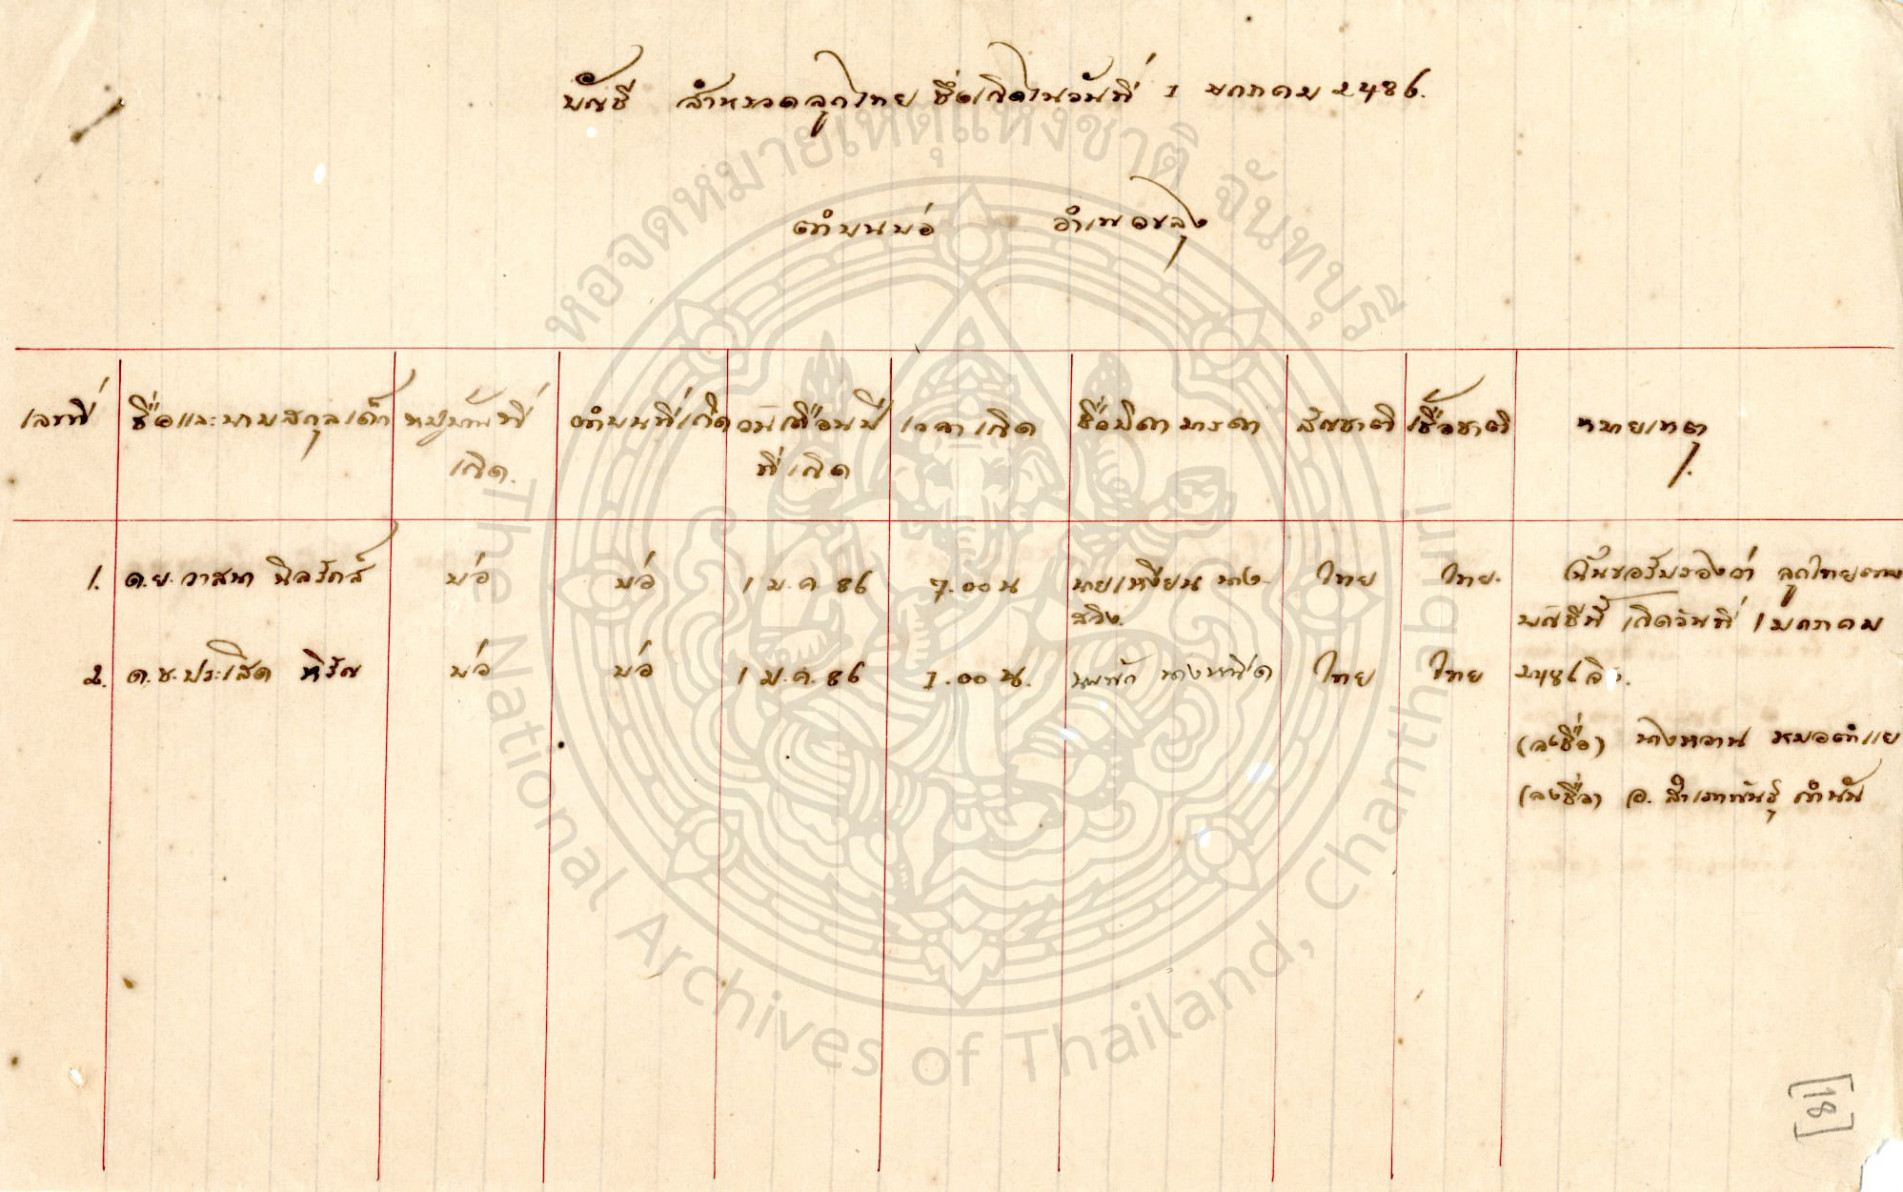 บัญชี สำหรวดลูกไทย ซึ่งเกิดในวันที่ 1 มกราคม 2486.
ตำบนบ่อ อำเพอขลุง
เลขที่ ชื่อและนามสกุลเด็ก หมู่บ้านที่เกิด. ตำบนที่เกิด วันเดือนปีที่เกิด เวลาเกิด ชื่อบิดามารดา สัญชาติ เชื้อชาติ หมายเหตุ.
1. ด.ย. วาสนา นิลรัก บ่อ บ่อ 1 ม.ค 86 7.00 น นายเหงียน นาง ไทย ไทย. ฉันขอรับรองว่า ลูกไทยตาม
บัญชีนี้ เกิดวันที่ 1 มกราคม
2. ด.ช. ประเสิด หิรัญ บ่อ บ่อ 1 ม.ค. 86 1.00 น. ไทย ไทย 2486 จิง.
(ลงชื่อ) นางหวาน หมอตำแย
(ลงชื่อ) อ. สำเภาพันธุ์ กำนัน
[18]
หอจดหมายเหตุแห่งชาติ จันทบุรี
The National Archives of Thailand, Chanthaburi